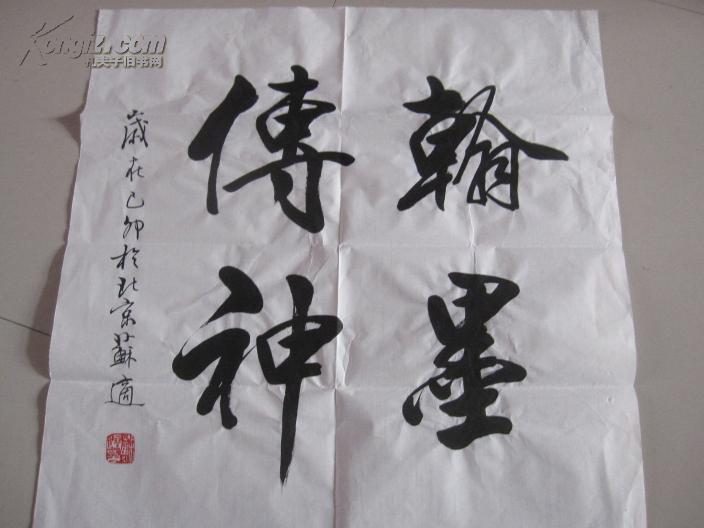 翰墨
傳神
歲在己卯於北京蘇適
Kongfz.com
孔夫子旧书网